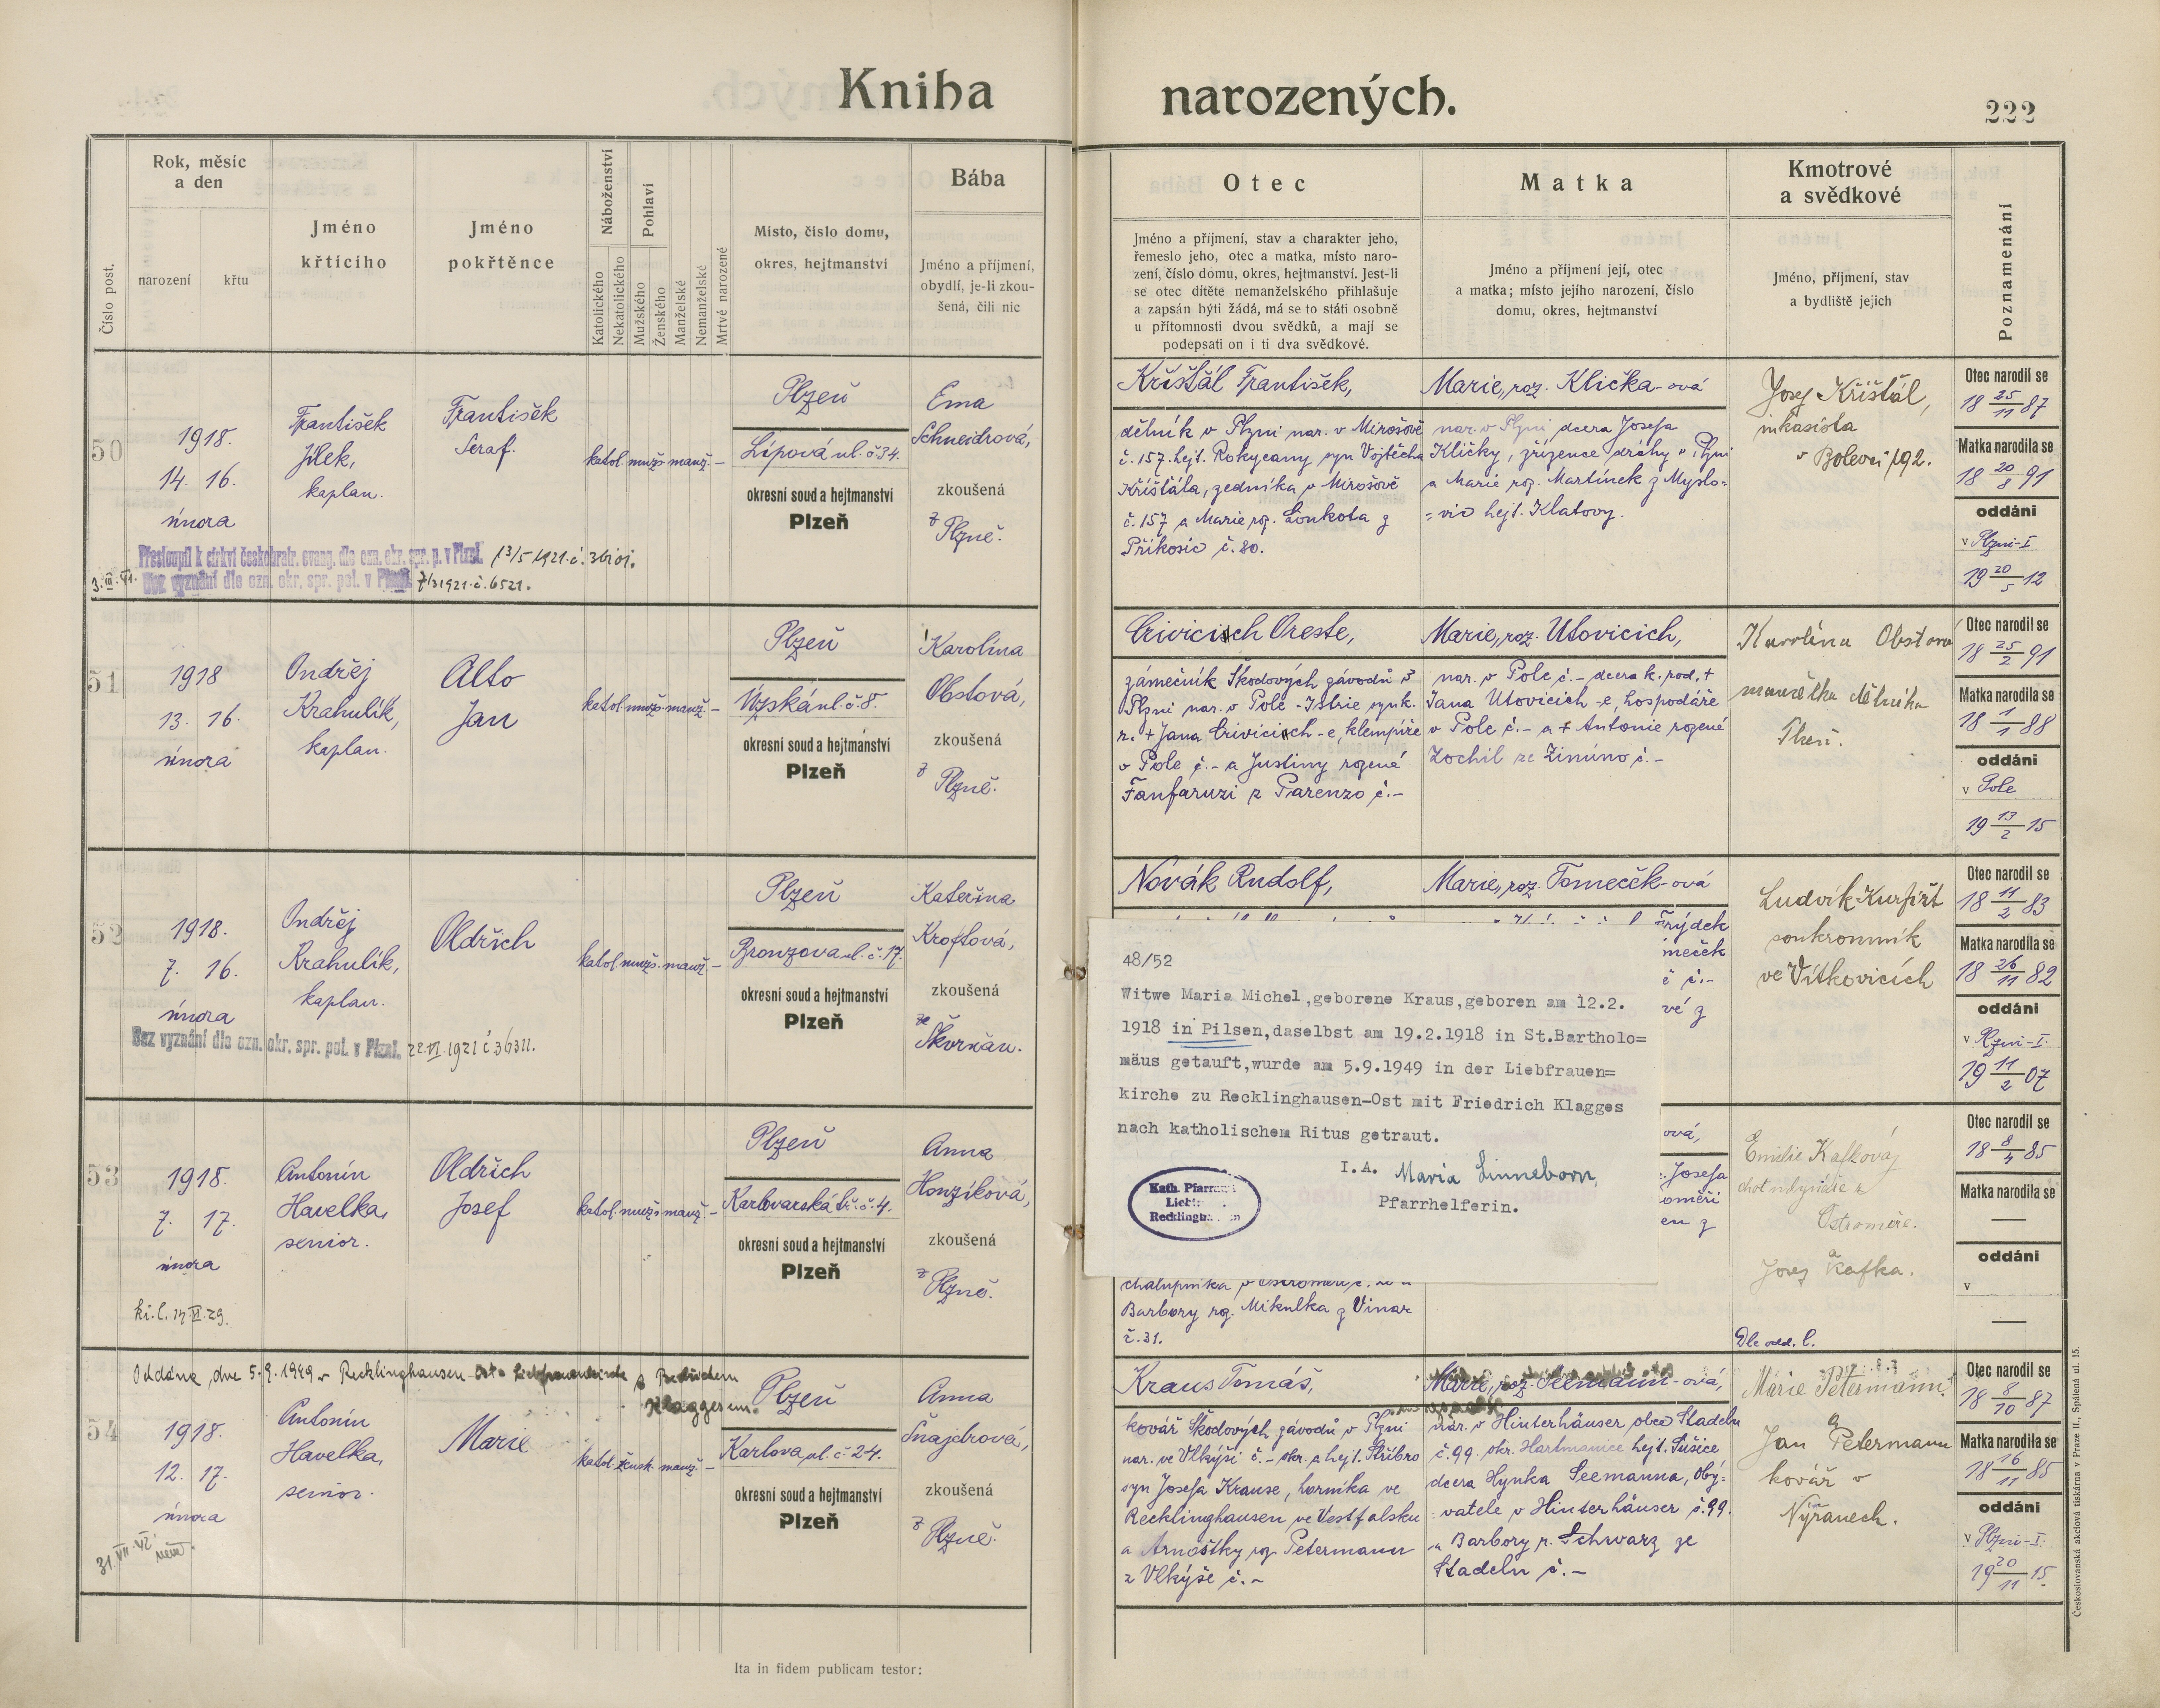 Kniha narozených.
222
Číslo post.
Rok, měsíc
a den
narození
křtu
Jméno
křtícího
Jméno
pokřtěnce
Náboženství
Katolického
Nekatolického
Pohlaví
Mužského
Ženského
Manželské
Nemanželské
Mrtvě narozené
Místo, číslo domu,
okres, hejtmanství
Bába
Jméno a příjmení,
obydlí, je-li zkou-
šená, čili nic
Otec
Jméno a příjmení, stav a charakter jeho,
řemeslo jeho, otec a matka, místo naro-
zení, číslo domu, okres, hejtmanství. Jest-li
se otec dítěte nemanželského přihlašuje
a zapsán býti žádá, má se to státi osobně
u přítomnosti dvou svědků, a mají se
podepsati on i ti dva svědkové.
Matka
Jméno a příjmení její, otec
a matka; místo jejího narození, číslo
domu, okres, hejtmanství
Kmotrové
a svědkové
Jméno, příjmení, stav
a bydliště jejich
Poznamenání
50
1918.
14. 16.
února
František
Jílek,
kaplan.
František
Seraf.
katol. mužs. manž. –
Plzeň
Lípová ul. č 34.
okresní soud a hejtmanství
Plzeň
Ema
Schneidrová,
zkoušená
z Plzně.
Přestoupil k církvi českobratr. evang. dle ozn. okr. spr. p. v Plzni.
Bez vyznání dle ozn. okr. spr. pol. v Plzni. 7/3 1921. č. 6521.
Křišťál František,
dělník v Plzni nar. v Mirošově
č. 157. hejt. Rokycany syn Vojtěcha
Křišťála, zedníka v Mirošově
č. 157 a Marie roz. Loukota z
Příkosic č. 80.
Marie, roz. Klička-ová
nar. v Plzni dcera Josefa
Kličky, zřízence dráhy v Plzni
a Marie roz. Martínek z Myslo-
=vic hejt. Klatovy.
Josef Křišťál,
inkasista
v Bolevci 192.
Otec narodil se
18 25/11 87
Matka narodila se
18 20/8 91
oddáni
v Plzni-I
19 20/5 12
51
1918
13. 16.
února
Ondřej
Krahulík,
kaplan.
Alto
Jan
katol. mužs. manž. –
Plzeň
Úzská ul. č. 8.
okresní soud a hejtmanství
Plzeň
Karolína
Obstová,
zkoušená
z Plzně.
Crivicich Oreste,
zámečník Škodových závodů v
Plzni nar. v Pole - Istrie syn k.
r. + Jana Crivicich-e, klempíře
v Pole č. - a Justiny rozené
Fanfaruzi z Parenzo č. -
Marie, roz. Utovicich,
nar. v Pole č. - dcera k. rod. +
Jana Utovicich-e, hospodáře
v Pole č. - a + Antonie rozené
Zochil ze Zimino č. -
Karolína Obstová
manželka dělníka
Plzeň.
Otec narodil se
18 25/2 91
Matka narodila se
18 1/1 88
oddáni
v Pole
19 13/2 15
52
1918.
7. 16.
února
Ondřej
Krahulík,
kaplan.
Oldřich
katol. mužs. manž. –
Plzeň
Bronzova ul. č. 17.
okresní soud a hejtmanství
Plzeň
Kateřina
Kroftová,
zkoušená
ze Škvrňan.
Bez vyznání dle ozn. okr. spr. pol. v Plzni. 22. VI. 1921 č 36311.
Novák Rudolf,
Marie, roz. Tomeček-ová
Frýdek
meček
č č. -
vé z
Ludvík Kurfiřt
soukromník
ve Vítkovicích
Otec narodil se
18 11/2 83
Matka narodila se
18 26/11 82
oddáni
v Plzni-I.
19 11/2 07
48/52
Witwe Maria Michel,geborene Kraus,geboren am 12.2.
1918 in Pilsen,daselbst am 19.2.1918 in St.Bartholo=
mäus getauft,wurde am 5.9.1949 in der Liebfrauen=
kirche zu Recklinghausen-Ost mit Friedrich Klagges
nach katholischem Ritus getraut.
I.A. Maria Linneborn,
Pfarrhelferin.
Kath. Pfarramt
Recklingh
53
1918.
7. 17.
února
Antonín
Havelka,
senior.
Oldřich
Josef
katol. mužs. manž. –
Plzeň
Karlovarská tř. č. 4.
okresní soud a hejtmanství
Plzeň
Anna
Honzíková,
zkoušená
z Plzně.
ová,
Josefa
oměři
en z
chalupníka v Ostroměři č.
Barbory roz. Mikulka z Vinar
č. 31.
Emilie Kafková
choť mlynáře z
Ostroměře.
a
Josef Kafka.
Dle odd. l.
Otec narodil se
18 8/4 85
Matka narodila se
—
oddáni
v
—
54
Oddána dne 5. 9. 1949 v Recklinghausen Ost s Bedřichem
Klaggesem.
1918.
12. 17.
února
Antonín
Havelka,
senior.
Marie
katol. žensk. manž. –
Plzeň
Karlova ul. č 24.
okresní soud a hejtmanství
Plzeň
Anna
Šnajdrová,
zkoušená
z Plzně.
Kraus Tomáš,
kovář Škodových závodů v Plzni
nar. ve Vlkýši č. - okr. a hejt. Stříbro
syn Josefa Krause, horníka ve
Recklinghausen ve Vestfalsku
a Arnoštky roz. Petermann
z Vlkýše č. -
Marie, roz. Seemann-ová,
nar. v Hinterhäuser obce Stadeln
č. 99 okr. Hartmanice hejt. Sušice
dcera Hynka Seemanna, oby-
vatele v Hinterhäuser č. 99.
a Barbory r. Schwarz ze
Stadeln č. -
Marie Petermann
a
Jan Petermann
kovář v
Nýřanech.
Otec narodil se
18 8/10 87
Matka narodila se
18 16/11 85
oddáni
v Plzni-I.
19 20/11 15.
Ita in fidem publicam testor:
Českoslovanská akciová tiskárna v Praze II., Spálená ul. 15.